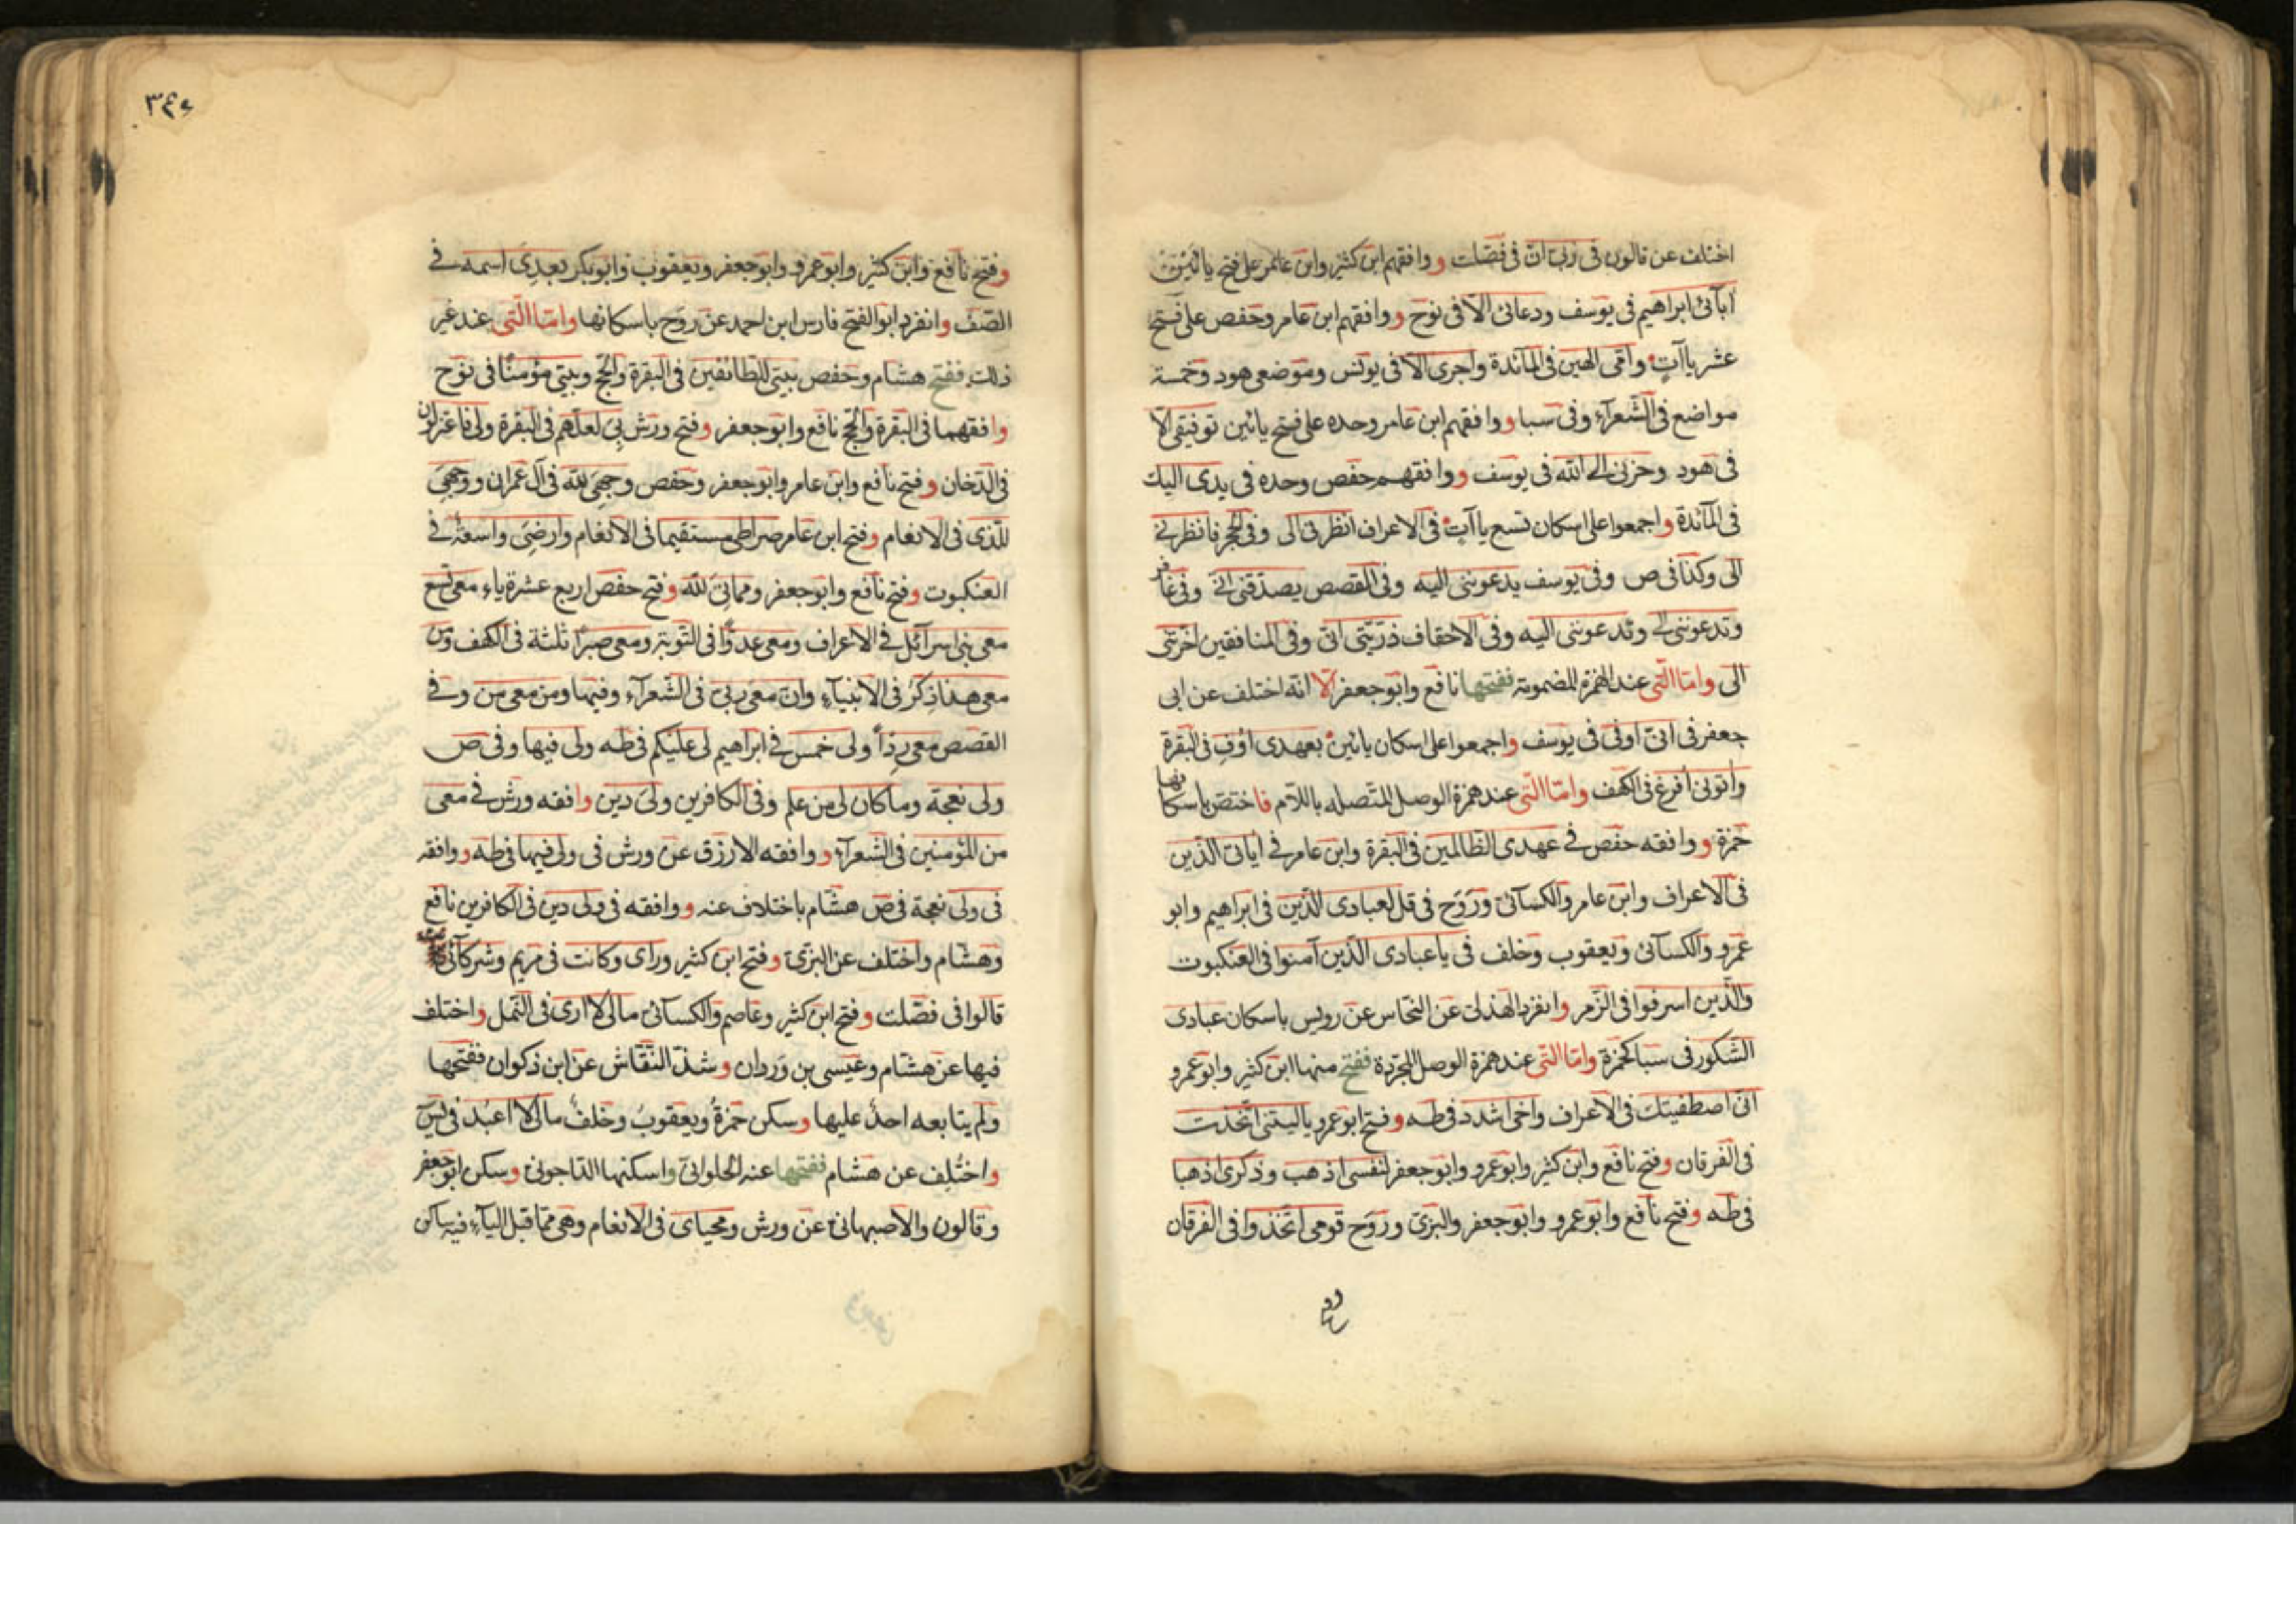 اختلف عن قالون فى ربى ان فى فصلت ووافقهم ابن كثير وابن عامر على فتح يائين
آبآئى ابراهيم فى يوسف ودعائى الا فى نوح ووافقهم ابن عامر وحفص على فتح
عشر ياآت وامى الهين فى المآئدة واجرى الا فى يونس وموضعى هود وخمسة
مواضع فى الشعرآء وفى سبا ووافقهم ابن عامر وحده على فتح يائين توفيقى الا
فى هود وحزنى الى الله فى يوسف ووافقهم حفص وحده فى يدى اليك
فى المآئدة واجمعوا على اسكان تسع ياآت فى الاعراف انظرنى الى وفى الحجر فانظرنى
الى وكذا فى ص وفى يوسف يدعوننى اليه وفى القصص يصدقنى انى وفى غافر
وتدعوننى الى وتدعوننى اليه وفى الاحقاف ذريتى انى وفى المنافقين اخرتنى
الى واما التى عند الهمزة المضمومة ففتحها نافع وابو جعفر الا انه اختلف عن ابى
جعفر فى انى اوفى فى يوسف واجمعوا على اسكان يائين بعهدى اوف فى البقرة
وآتونى افرغ فى الكهف واما التى عند همزة الوصل المتصله باللام فاختص باسكانها
حمزة ووافقه حفص فى عهدى الظالمين فى البقرة وابن عامر فى آياتى الذين
فى الاعراف وابن عامر والكسآئى وروح فى قل لعبادى الذين فى ابراهيم وابو
عمرو والكسآئى ويعقوب وخلف فى ياعبادى الذين آمنوا فى العنكبوت
والذين اسرفوا فى الزمر وانفرد الهذلى عن النخاس عن رويس باسكان عبادى
الشكور فى سبا كحمزة واما التى عند همزة الوصل المجردة ففتح منها ابن كثير وابو عمرو
انى اصطفيتك فى الاعراف واخى اشدد فى طه وفتح ابو عمرو ياليتنى اتخذت
فى الفرقان وفتح نافع وابن كثير وابو عمرو وابو جعفر لنفسى اذهب وذكرى اذهبا
فى طه وفتح نافع وابو عمرو وابو جعفر والبزى وروح قومى اتخذوا فى الفرقان
وفتح نافع وابن كثير وابو عمرو وابو جعفر ويعقوب وابو بكر بعدى اسمه فى
الصف وانفرد ابو الفتح فارس ابن احمد عن روح باسكانها واما التى عند غير
ذلك ففتح هشام وحفص بيتى للطائفين فى البقرة والحج وبيتى مؤمنا فى نوح
وافقهما فى البقرة والحج نافع وابو جعفر وفتح ورش بى لعلهم فى البقرة ولى فاعتزلون
فى الدخان وفتح نافع وابن عامر وابو جعفر وحفص وجهى لله فى آل عمران ووجهى
للذى فى الانعام وفتح ابن عامر صراطى مستقيما فى الانعام وارضى واسعة فى
العنكبوت وفتح نافع وابو جعفر ومماتى لله وفتح حفص اربع عشرة ياء معى تسع
معى بنى اسرآئل فى الاعراف ومعى عدوا فى التوبة ومعى صبرا ثلثة فى الكهف وذ
معى هذا ذكر فى الانبيآء وان معى ربى فى الشعرآء وفيها ومن معى من وفى
القصص معى ردأ ولى خمس فى ابراهيم لى عليكم فى طه ولى فيها وفى ص
ولى نعجة وما كان لى من علم وفى الكافرين ولى دين وافقه ورش فى معى
من المؤمنين فى الشعرآء ووافقه الازرق عن ورش فى ولى فيها فى طه ووافقه
فى ولى نعجة فى ص هشام باختلاف عنه ووافقه فى ولى دين فى الكافرين نافع
وهشام واختلف عن البزى وفتح ابن كثير ورآى وكانت فى مريم وشركآئى
قالوا فى فصلت وفتح ابن كثير وعاصم والكسآئى مالى لا ارى فى النمل واختلف
فيها عن هشام وعيسى بن وردان وشذ النقاش عن ابن ذكوان ففتحها
ولم يتابعه احد عليها وسكن حمزة ويعقوب وخلف مالى لا اعبد فى يس
واختلف عن هشام ففتحها عنه الحلوانى واسكنها الداجونى وسكن ابو جعفر
وقالون والاصبهانى عن ورش ومحياى فى الانعام وهى مما قبل اليآء فيه ساكن